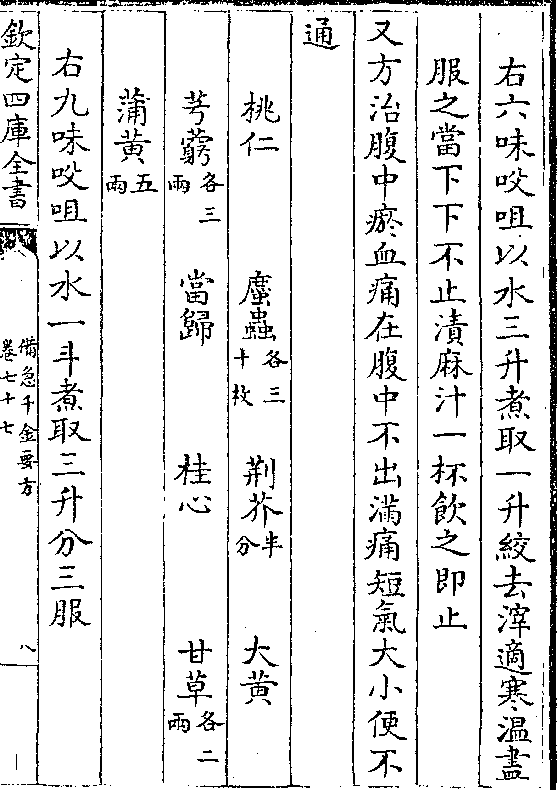 右六味㕮咀以水三升煮取一升絞去滓適寒温盡
服之當下下不止漬麻汁一杯飲之即止
又方治腹中瘀血痛在腹中不出滿痛短氣大小便不
通
桃仁 䗪蟲各三十枚 荆芥半分 大黄
芎藭各三兩 當歸 桂心 甘草各二兩
蒲黄五兩
右九味㕮咀以水一斗煮取三升分三服
欽定四庫全書 備急千金要方卷七十七 八